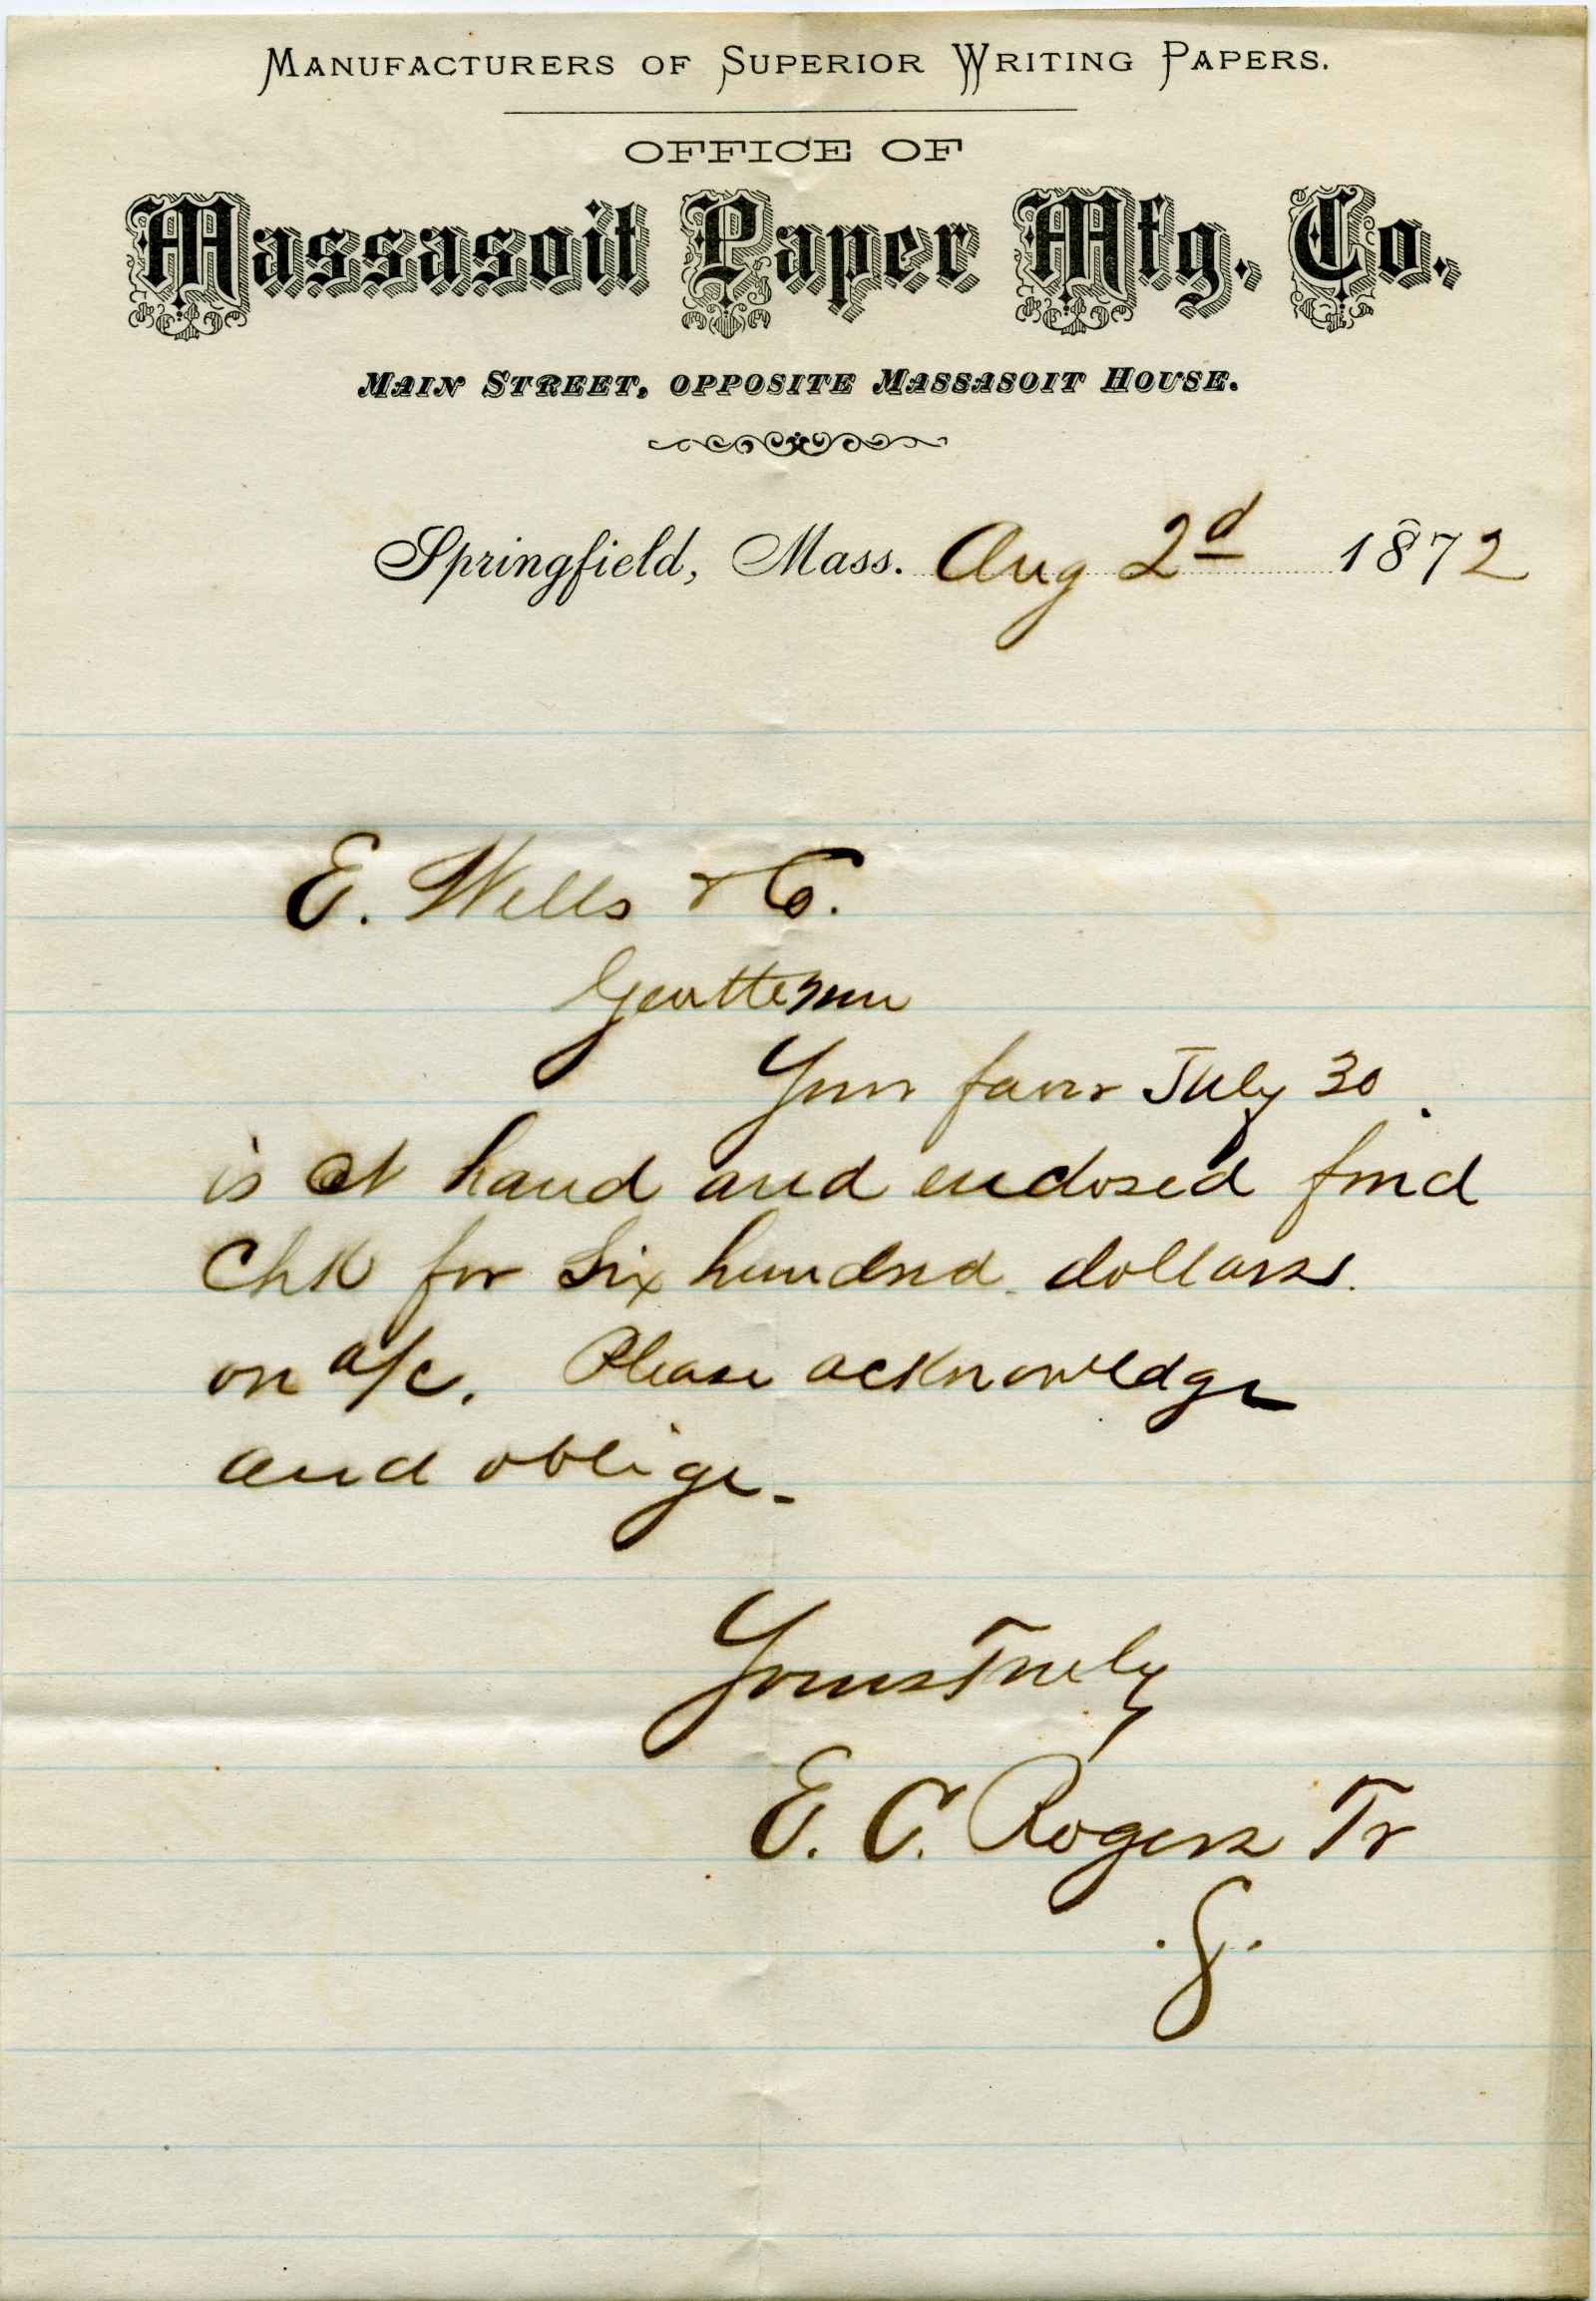 MANUFACTURERS OF SUPERIOR WRITING PAPERS.
OFFICE OF
Massasoit Paper Mfg. Co.,
MAIN STREET, OPPOSITE MASSASOIT HOUSE.
Springfield, Mass. Aug 2d 1872
E. Wells & Co.
Gentlemen
Your favor July 30.
is at hand and enclosed find
Chk for Six hundred dollars.
on a/c. Please acknowledge
and oblige.
Yours Truly
E. C. Rogers Tr
.G.